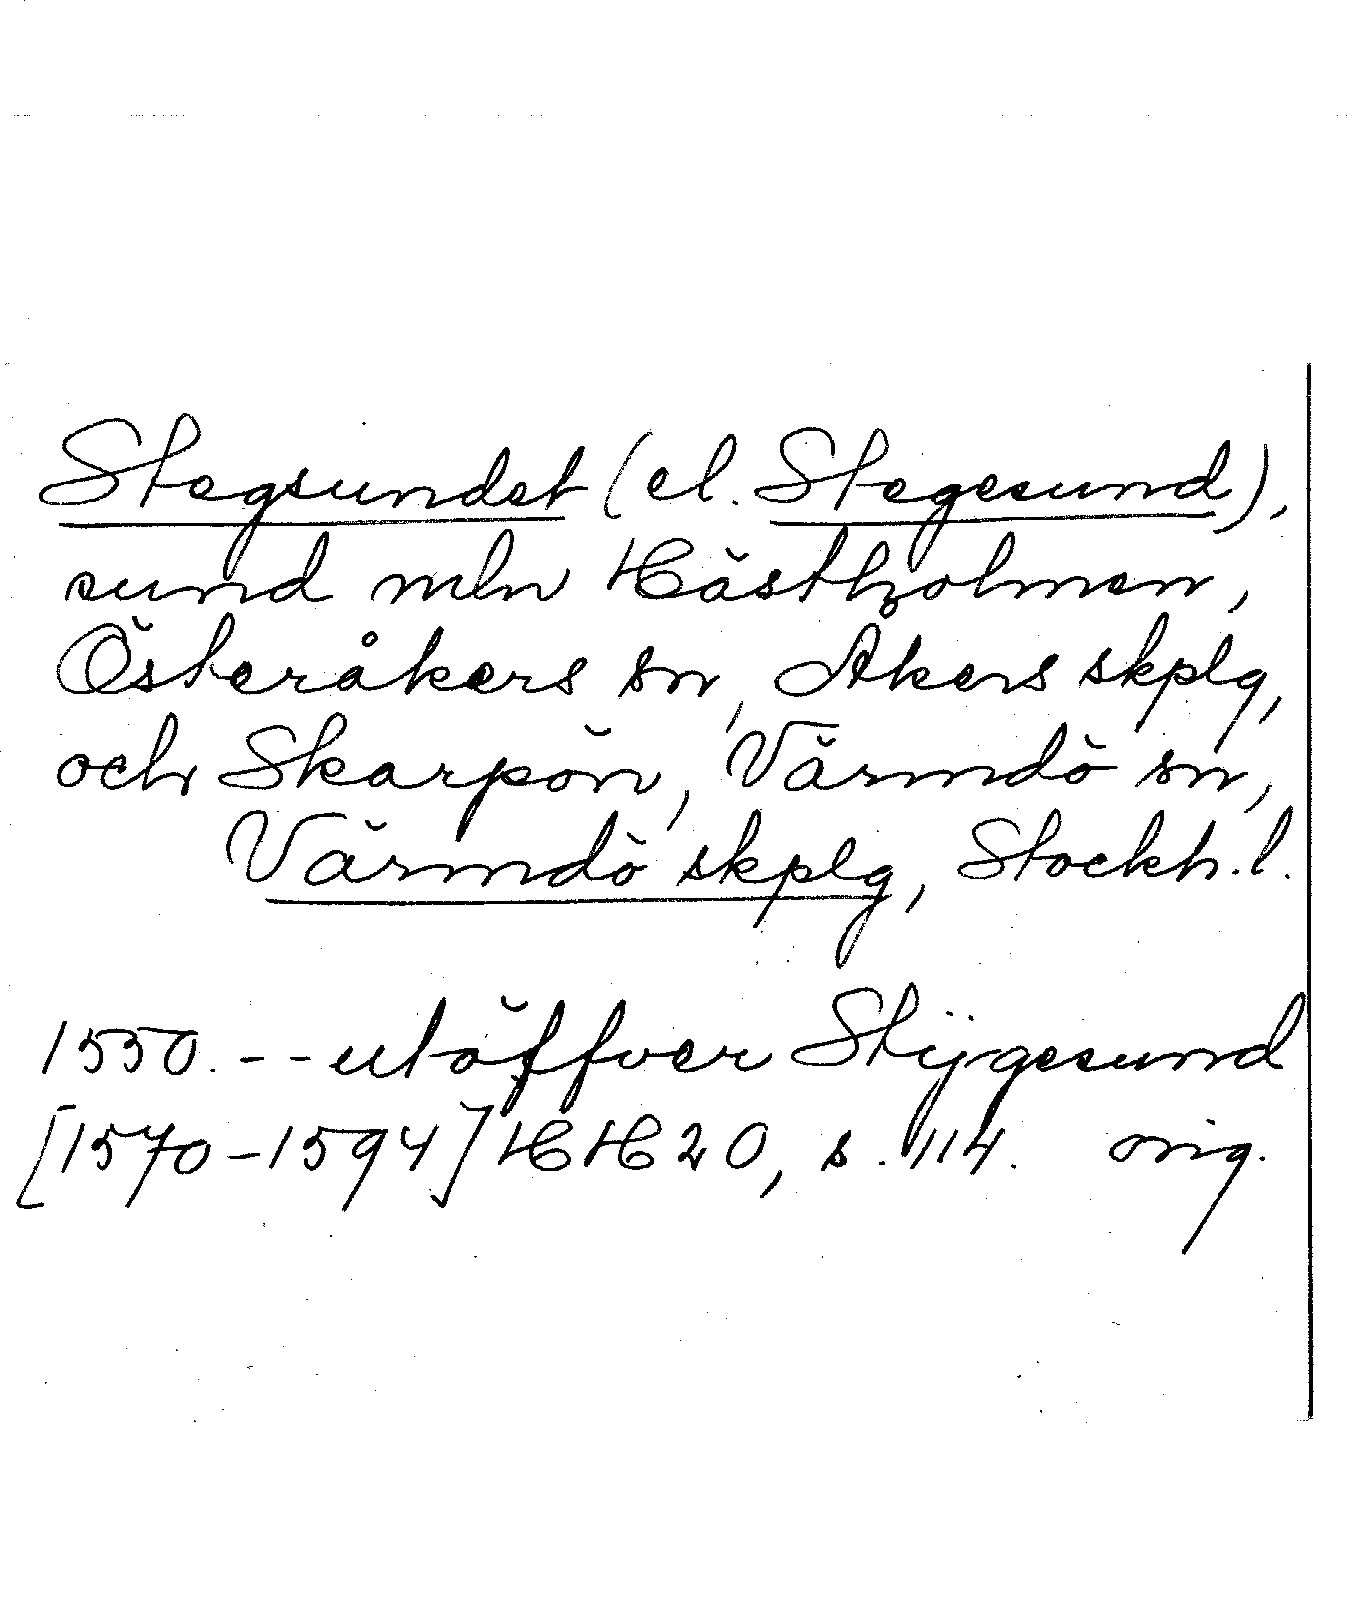 Stegsundet (el. Stegesund),
sund mln Hästholmen,
Österåkers sn, Åkers skplg,
och Skarpön, Värmdö sn,
Värmdö skplg, Stockh. l.
1550. -- utöffver Stijgesund
[1570-1594] HH 20, s. 114. orig.